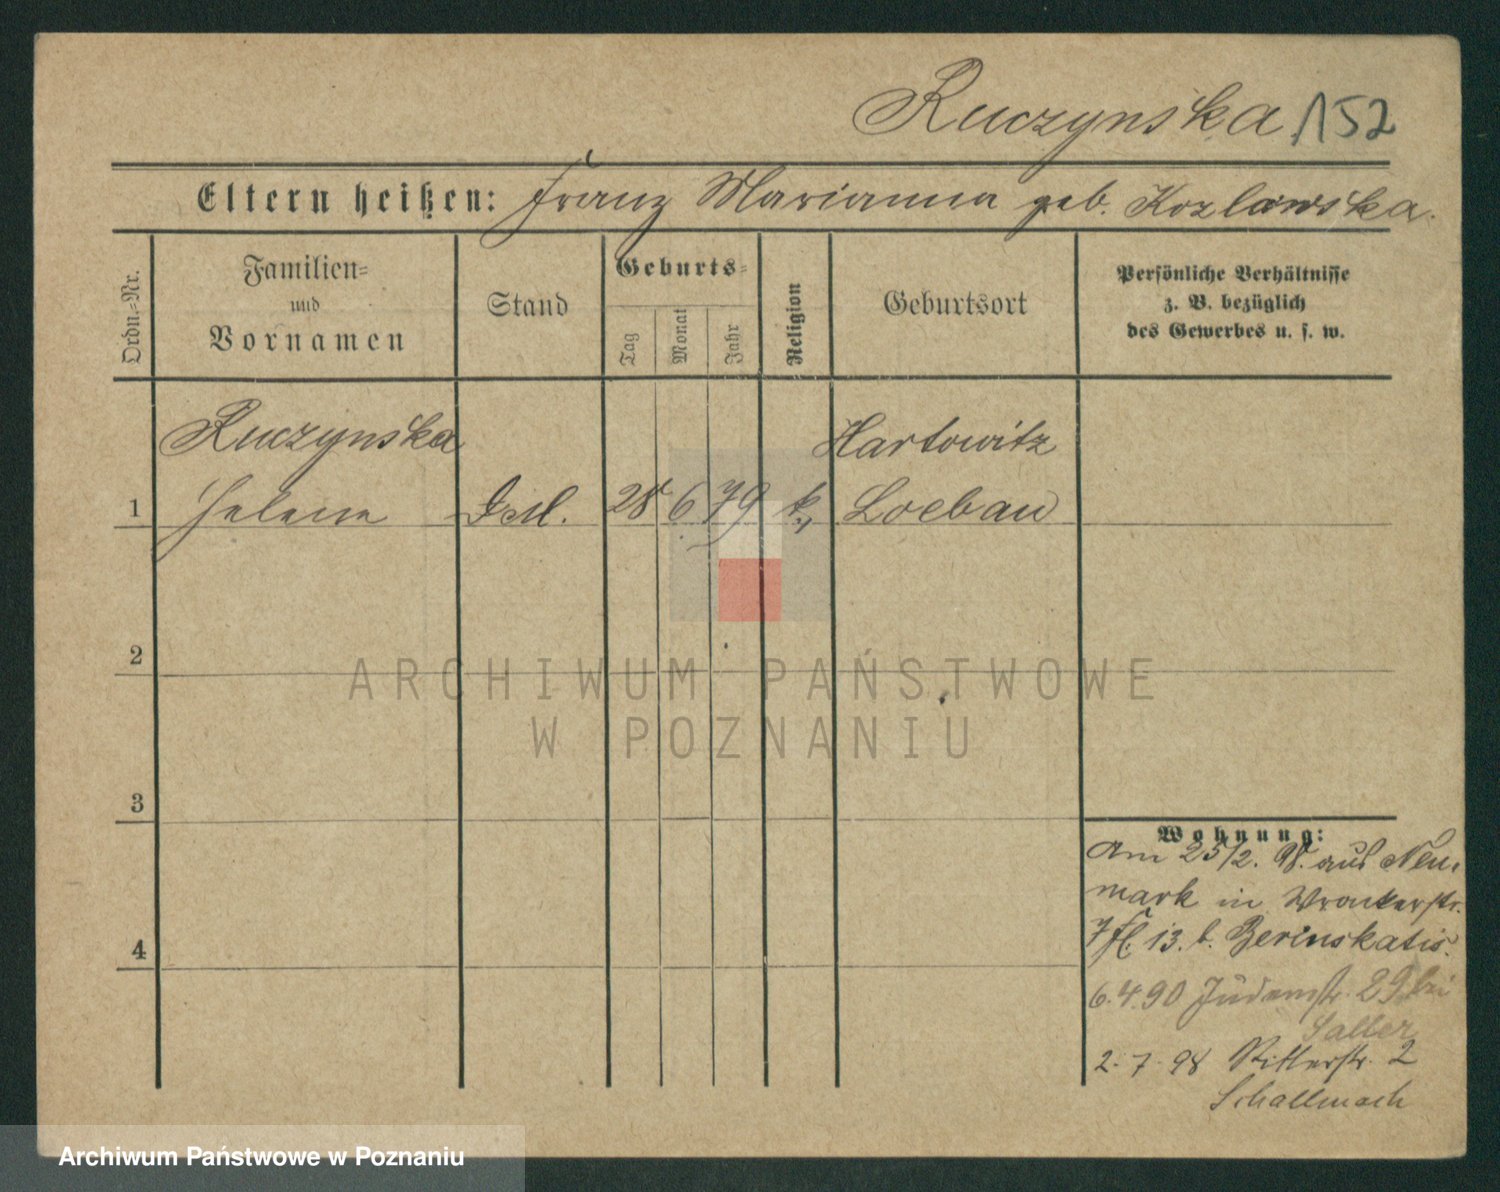 Ruczynska 152
Eltern heißen: Franz Marianna geb. Kozlawska.
Ordn.-Nr.
Familien-
und
Vornamen
Stand
Geburts-
Tag
Monat
Jahr
Religion
Geburtsort
Persönliche Verhältnisse
z. B. bezüglich
des Gewerbes u. s. w.
Ruczynska
Hartowitz
1 Helene 28 6. 79 k. Loebau
2
ARCHIWUM PAŃSTWOWE
W POZNANIU
3
Wohnung:
Am 25/2. 98. aus Neu-
mark in Wronkerstr.
7 13. b. Zerinskatis.
6.4.90 Judenstr. 29 bei
Salter
2.7.98 Ritterstr. 2
Schallmach
4
Archiwum Państwowe w Poznaniu